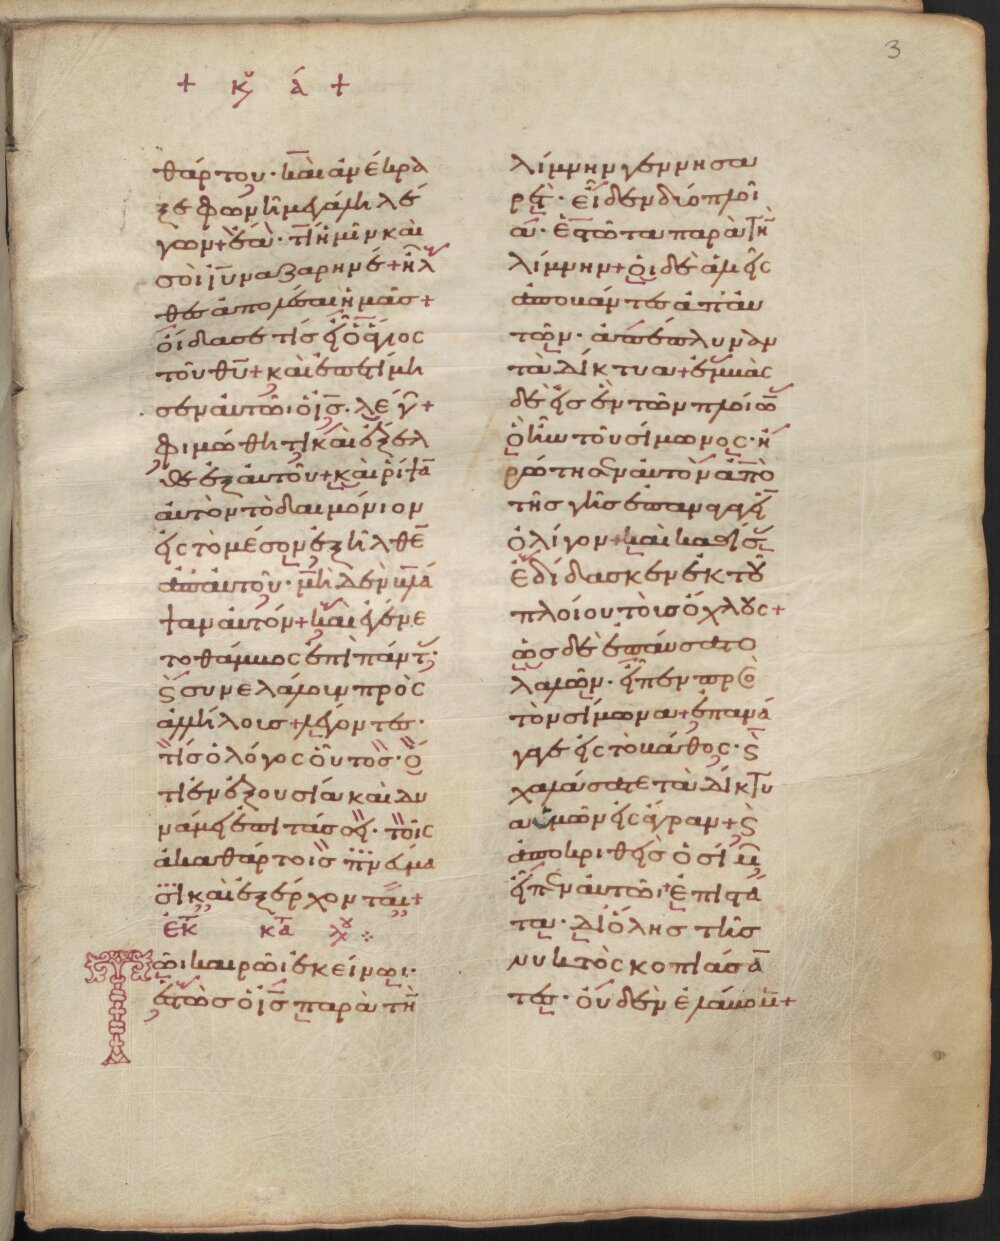 3
+ κυ α +
θάρτου· καὶ ἀνέκρα
ξε φωνῆ μεγάλη λέ
γων + ἔα· τί ἡμῖν καὶ
σοὶ ιυ ναζαρηνέ + ἦλ
θες ἀπολέσαι ἡμᾶς +
οἶδα σε τίς εἶ ὁ ἅγιος
τοῦ θυ + καὶ ἐπετίμη
σεν αὐτῶι ὁ ις· λέγ +
φιμώθητι καὶ ἔξελ
θε ἐξ αὐτοῦ + καὶ ρίψα
αὐτὸν τὸ δαιμόνιον
εἰς τὸ μέσον ἐξῆλθε
ἀπ αὐτοῦ· μηδὲν βλά
ψαν αὐτόν + καὶ ἐγένε
το θάμβος ἐπὶ πάντ·
ς συνελάλουν πρὸς
ἀλλήλους + λέγοντες·
τίς ὁ λόγος οὗτος· ὅ
τι ἐν ἐξουσία καὶ δυ
νάμει ἐπιτάσσει· τοῖς
ἀκαθάρτοις πνεύμα
σι καὶ ἐξέρχονται +
ἐκ κα λου
Τῶι καιρῶι ἐκείνωι·
ἑστὼς ὁ ις παρὰ τὴ
λίμνην γεννησα
ρέτ· εἶδεν δύο πλοῖ
α· ἑστῶτα παρὰ τὴ
λίμνην + οἱ δὲ ἁλιεῖς
ἀποβάντες ἀπ αὐ
τῶν· ἀπέπλυναν
τὰ δίκτυα + ἐμβὰς
δὲ εἰς ἓν τῶν πλοίω
ὃ ἦν τοῦ σίμωνος· ἠ
ρώτησεν αὐτὸν ἀπὸ
τῆς γῆς ἐπαναγαγεῖ
ὀλίγον + καὶ καθίσ
ἐδίδασκεν ἐκ τοῦ
πλοίου τοὺς ὄχλους +
ὡς δὲ ἐπαύσατο
λαλῶν· εἶπεν προ
τὸν σίμωνα + ἐπανά
γαγε εἰς τὸ βάθος· ς
χαλάσατε τὰ δίκτυ
α ὑμῶν εἰς ἄγραν + ς
ἀποκριθεὶς ὁ σίμ
εἶπεν αὐτῶι + ἐπιστά
τα· δι ὅλης τῆς
νυκτὸς κοπιάσα
τες· οὐδὲν ἐλάβομ +